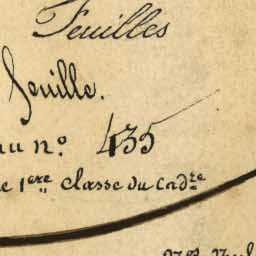 Feuilles
feuille.
au nº 435
e 1ere classe du Cadtre